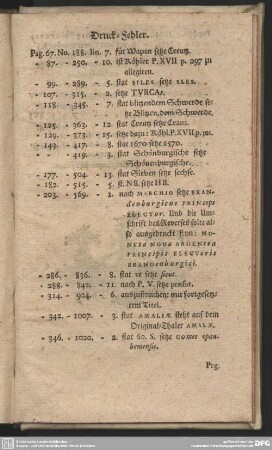 Druck-Fehler.
Pag. 67. No. 188. lin. 7. für Wapen setze Creutz.
- 87. - 250. - 10. ist Köhler P. XVII p. 297 zu
allegiren.
- 99. - 289. - 5. stat SILES. setze SLES.
- 107. - 315. - 2. setze TVRCAs.
- 118. - 345. - 7. stat blitzendem Schwerde se-
tze Blitzen, dem Schwerde,
- 125. - 363. - 12. stat Creutz setze Crantz.
- 129. - 373. - 15. setze dazu: Köhl. P. XVII p. 301.
- 143. - 417. - 8. stat 1670 setze 1570.
- - 419. - 3. stat Schönburgische setze
Schönenburgische.
- 177. - 504. - 13. stat Sieben setze sechse.
- 182. - 515. - 5. st. NB. setze HB.
- 203. - 569. - 1. nach MARCHIO setze BRAN-
denburgicus PRINCEPS
ELECTOR. Und die Um-
schrift des Reverses solte al-
so ausgedruckt seyn: MO-
NETA NOVA ARGENTEA
PRINCIPIS ELECTORIS
BRANDENburgici.
- 286. - 836. - 8. stat ut setze sicut.
- 288. - 842. - 11. nach P. V. setze penset.
- 314. - 924. - 6. auszustreichen: mit fortgesetz-
tem Titel.
- 342. - 1007. - 3. stat AMALIÆ steht auf dem
Original-Thaler AMALÆ.
- 346. - 1020. - 2. stat 60. S. setze comes span-
hemensis.
Prg.